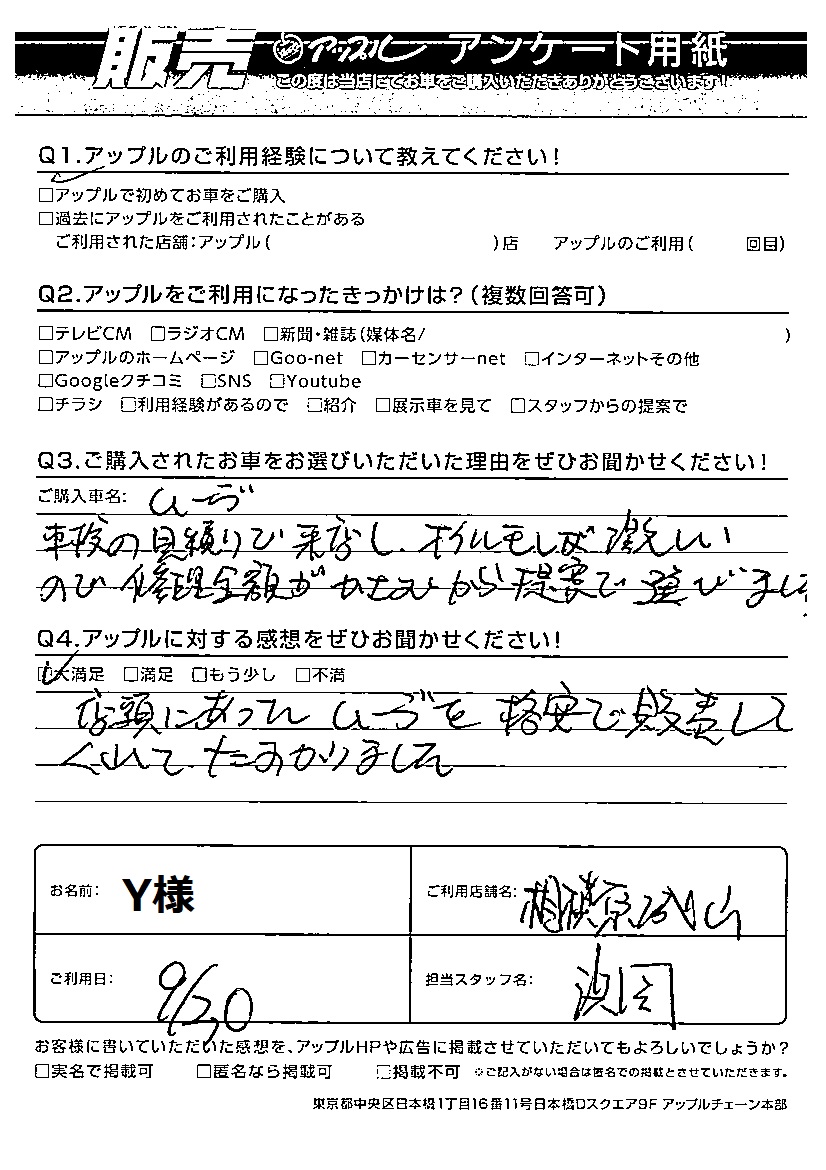 販売 アップル アンケート用紙
この度は当店にてお車をご購入いただきありがとうございます!
Q1.アップルのご利用経験について教えてください!
□アップルで初めてお車をご購入
□過去にアップルをご利用されたことがある
ご利用された店舗:アップル( )店 アップルのご利用( 回目)
Q2.アップルをご利用になったきっかけは?(複数回答可)
□テレビCM □ラジオCM □新聞・雑誌(媒体名/ )
□アップルのホームページ □Goo-net □カーセンサーnet □インターネットその他
□Googleクチコミ □SNS □Youtube
□チラシ □利用経験があるので □紹介 □展示車を見て □スタッフからの提案で
Q3.ご購入されたお車をお選びいただいた理由をぜひお聞かせください!
ご購入車名: ムーヴ
車検の見積りで来店し、オイルモレが激しい
ので修理金額がかさむから提案で選びました
Q4.アップルに対する感想をぜひお聞かせください!
☑大満足 □満足 □もう少し □不満
店頭にあったムーヴを格安で販売して
くれてたすかりました
お名前: Y様 ご利用店舗名: 相模原城山
ご利用日: 9/30 担当スタッフ名:
お客様に書いていただいた感想を、アップルHPや広告に掲載させていただいてもよろしいでしょうか?
□実名で掲載可 □匿名なら掲載可 □掲載不可 ※ご記入がない場合は匿名での掲載とさせていただきます。
東京都中央区日本橋1丁目16番11号日本橋Dスクエア9F アップルチェーン本部